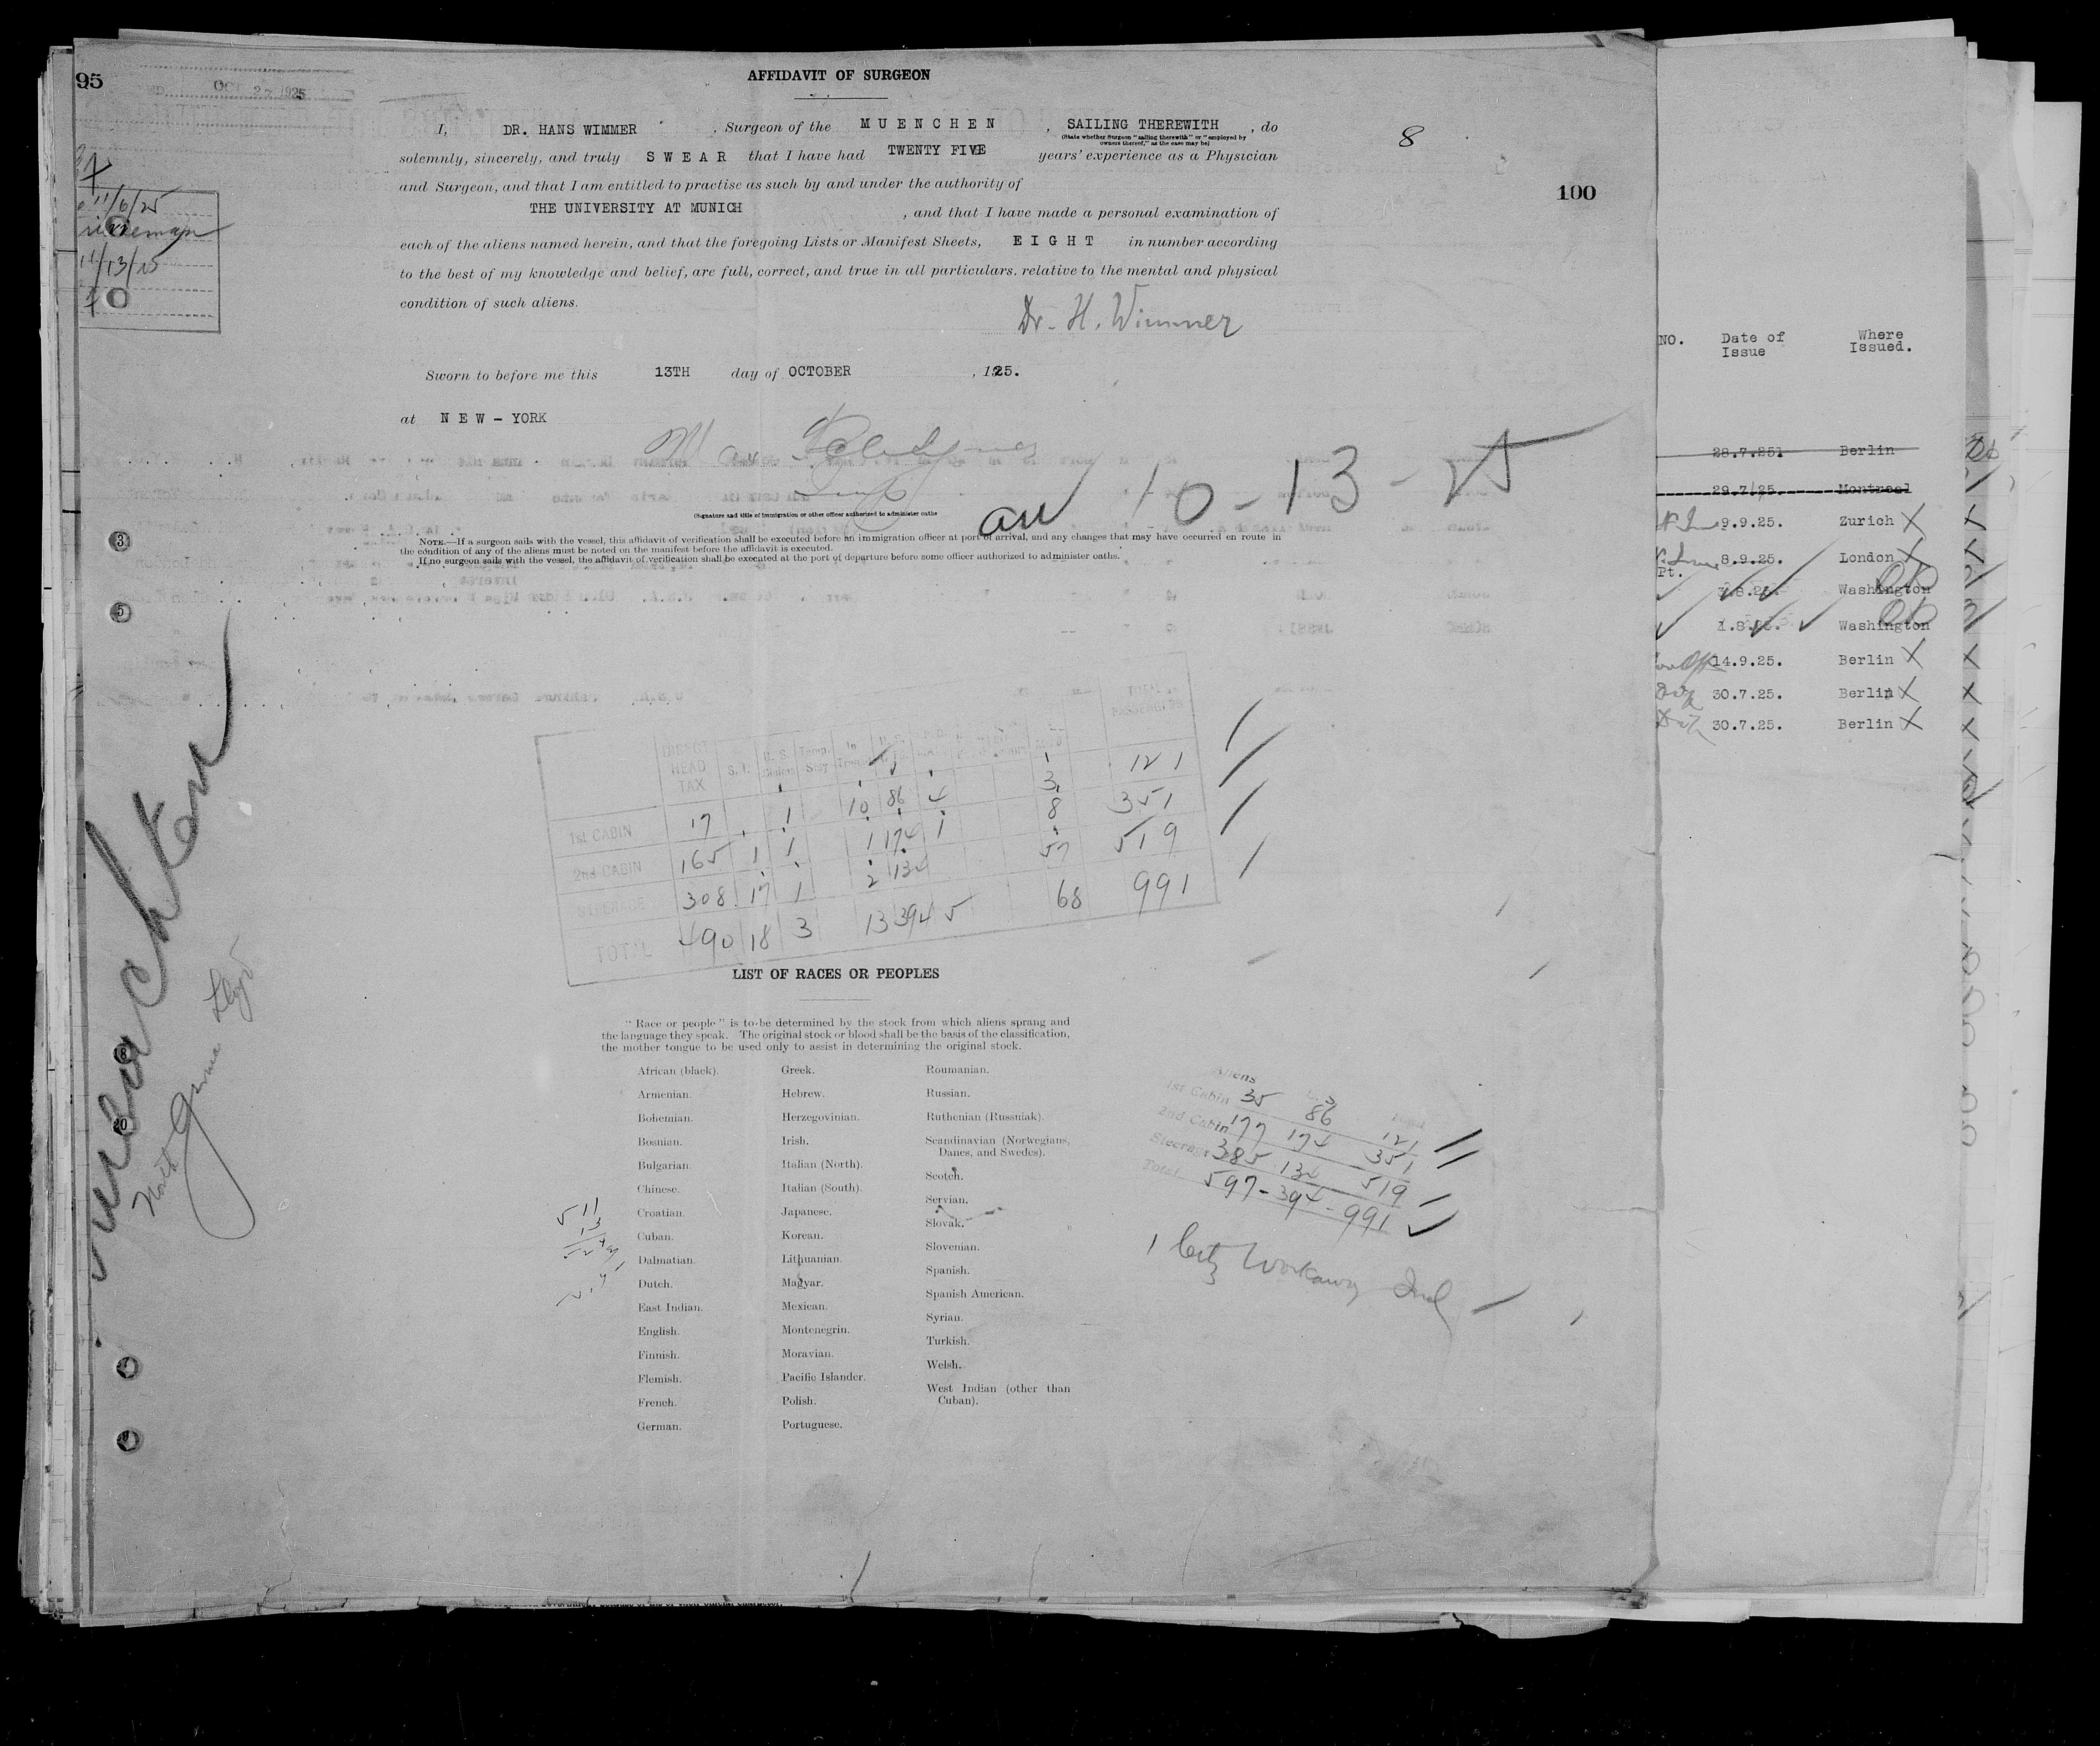 95
OCT 27 1925
11/6/25
11/13/25
AFFIDAVIT OF SURGEON
I, DR. HANS WIMMER, Surgeon of the MUENCHEN, SAILING THEREWITH, do
(State whether Surgeon "sailing therewith" or "employed by
owners thereof," as the case may be)
8
solemnly, sincerely, and truly SWEAR that I have had TWENTY FIVE years' experience as a Physician
and Surgeon, and that I am entitled to practise as such by and under the authority of
100
THE UNIVERSITY AT MUNICH, and that I have made a personal examination of
each of the aliens named herein, and that the foregoing Lists or Manifest Sheets, EIGHT in number according
to the best of my knowledge and belief, are full, correct, and true in all particulars. relative to the mental and physical
condition of such aliens.
Dr. H. Wimmer
Sworn to before me this 13TH day of OCTOBER, 1925.
at NEW-YORK
Max
10-13-25
(Signature and title of immigration or other officer authorized to administer oaths
NOTE.—If a surgeon sails with the vessel, this affidavit of verification shall be executed before an immigration officer at port of arrival, and any changes that may have occurred en route in
the condition of any of the aliens must be noted on the manifest before the affidavit is executed.
If no surgeon sails with the vessel, the affidavit of verification shall be executed at the port of departure before some officer authorized to administer oaths.
NO. Date of Issue Where Issued.
28.7.251 Berlin
29.7.25. Montreal
9.9.25. Zurich X
8.9.25. London X
Pt.
Washington
1.8.25. Washington
14.9.25. Berlin X
30.7.25. Berlin X
30.7.25. Berlin X
DIRECT HEAD TAX S.I. U.S. Temp. Stay In TOTAL PASSENGERS
1st CABIN 17 1 10 86 4 3 121
2nd CABIN 165 1 1 1 174 1 8 351
STEERAGE 308 17 1 2 134 57 519
TOTAL 490 18 3 13 394 5 68 991
North German Lloyd
LIST OF RACES OR PEOPLES
"Race or people" is to be determined by the stock from which aliens sprang and
the language they speak. The original stock or blood shall be the basis of the classification,
the mother tongue to be used only to assist in determining the original stock.
African (black).
Armenian.
Bohemian.
Bosnian.
Bulgarian.
Chinese.
Croatian.
Cuban.
Dalmatian.
Dutch.
East Indian.
English.
Finnish.
Flemish.
French.
German.
Greek.
Hebrew.
Herzegovinian.
Irish.
Italian (North).
Italian (South).
Japanese.
Korean.
Lithuanian.
Magyar.
Mexican.
Montenegrin.
Moravian.
Pacific Islander.
Polish.
Portuguese.
Roumanian.
Russian.
Ruthenian (Russniak).
Scandinavian (Norwegians,
Danes, and Swedes).
Scotch.
Servian.
Slovak.
Slovenian.
Spanish.
Spanish American.
Syrian.
Turkish.
Welsh.
West Indian (other than
Cuban).
Aliens
1st Cabin 35 86 121
2nd Cabin 177 174 351
Steerage 385 134 519
Total 597-394-991
1 City Workaway
511
13